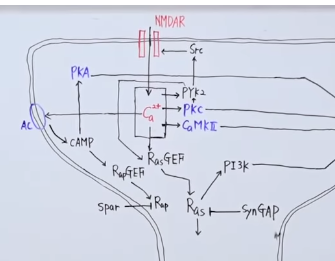 NMDAR
Src
PKA
PYK2
Ca²⁺
PKC
CaMKII
AC
cAMP
RasGEF
RapGEF
PI3K
Spar
Rap
Ras
SynGAP